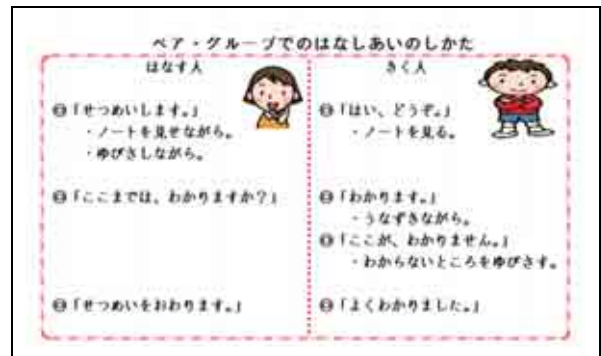 ペア・グループでのはなしあいのしかた
はなす人
😊「せつめいします。」
・ノートを見せながら。
・ゆびさしながら。
😊「ここまでは、わかりますか？」
😊「せつめいをおわります。」
きく人
😊「はい、どうぞ。」
・ノートを見る。
😊「わかります。」
・うなずきながら。
😊「ここが、わかりません。」
・わからないところをゆびさす。
😊「よくわかりました。」